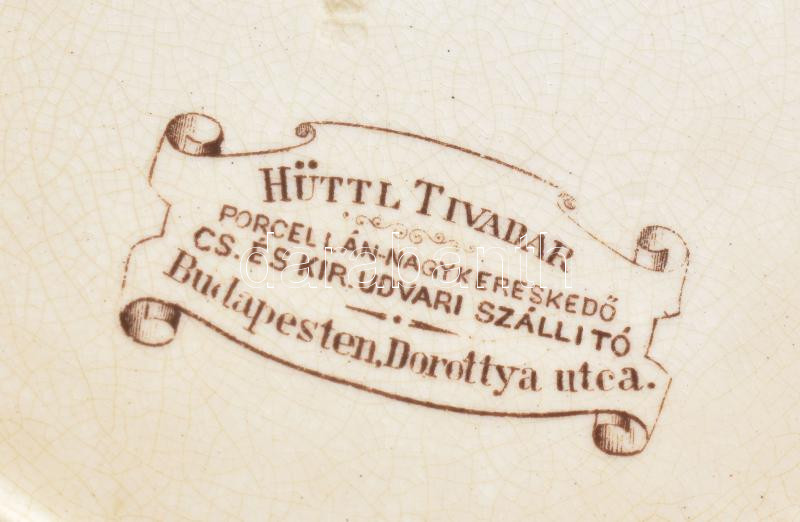 HÜTTL TIVADAR
PORCELLÁN-NAGYKERESKEDŐ
CS. ÉS KIR. UDVARI SZÁLLITÓ
Budapesten, Dorottya utca.
darabanth